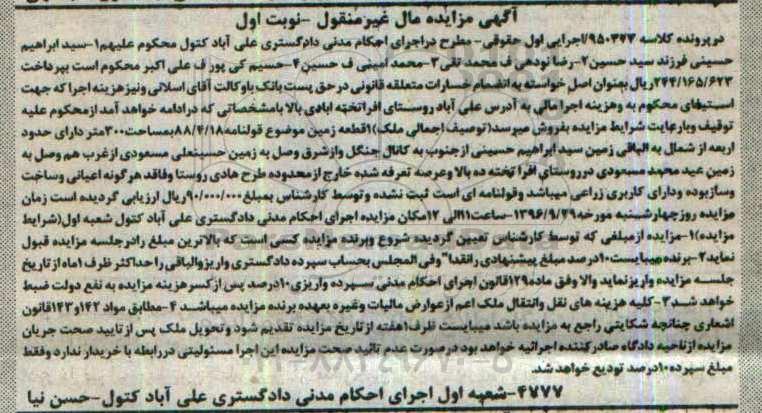 آگهی مزایده مال غیرمنقول -نوبت اول
درپرونده کلاسه ۹۵۰۳۷۷/اجرایی اول حقوقی- مطرح دراجرای احکام مدنی دادگستری علی آباد کتول محکوم علیهم۱-سید ابراهیم
حسینی فرزند سید حسین۲-رضا نودهی ف محمد تقی۳-محمد امینی ف حسین۴-حسیم کی پور ف علی اکبر محکوم است بپرداخت
۲۴۴/۱۶۵/۶۲۳ریال بعنوان اصل خواسته به انضمام خسارات متعلقه قانونی در حق پست بانک باوکالت آقای اسلانی ونیزهزینه اجرا که جهت
استیفای محکوم به وهزینه اجرا مالی به آدرس علی آباد روستای افراتخته ابادی بالا بامشخصاتی که درادامه خواهد آمد ازمحکوم علیه
توقیف وبارعایت شرایط مزایده بفروش میرسد(توصیف اجمالی ملک)۱قطعه زمین موضوع قولنامه۸۸/۴/۱۸بمساحت۳۰۰متر دارای حدود
اربعه از شمال به الباقی زمین سید ابراهیم حسینی ازجنوب به کانال جنگل وازشرق وصل به زمین حسینعلی مسعودی ازغرب هم وصل به
زمین عید محمد مسعودی درروستای افرا تخته ده بالا وعرصه تعرفه شده خارج ازمحدوده طرح هادی روستا وفاقد هرگونه اعیانی وساخت
وسازبوده ودارای کاربری زراعی میباشد وقولنامه ای است ثبت نشده وتوسط کارشناس بمبلغ۹۰/۰۰۰/۰۰۰ریال ارزیابی گردیده است زمان
مزایده روزچهارشنبه مورخه۱۳۹۶/۹/۲۹-ساعت۱۱الی ۱۲مکان مزایده اجرای احکام مدنی دادگستری علی آباد کتول شعبه اول(شرایط
مزایده)۱-مزایده ازمبلغی که توسط کارشناس تعیین گردیده شروع وبرنده مزایده کسی است که بالاترین مبلغ رادرجلسه مزایده قبول
نماید۲-برنده میبایست۱۰درصد مبلغ پیشنهادی رانقدا"وفی المجلس بحساب سپرده دادگستری واریزوالباقی راحداکثر ظرف ۱ماه ازتاریخ
جلسه مزایده واریزنماید والا وفق ماده۱۲۹قانون اجرای احکام مدنی سپرده واریزی۱۰درصد پس ازکسرهزینه مزایده به نفع دولت ضبط
خواهد شد۳-کلیه هزینه های نقل وانتقال ملک اعم ازعوارض مالیات وغیره بعهده برنده مزایده میباشد ۴-مطابق مواد ۱۴۲و۱۴۳قانون
اشعاری چنانچه شکایتی راجع به مزایده باشد میبایست ظرف۱هفته ازتاریخ مزایده تقدیم شود وتحویل ملک پس ازتایید صحت جریان
مزایده ازناحیه دادگاه صادرکننده اجرائیه خواهد بود درصورت عدم تائید صحت مزایده این اجرا مسئولیتی دررابطه با خریدار ندارد وفقط
مبلغ سپرده۱۰درصد تودیع خواهد شد.
۴۷۷۷-شعبه اول اجرای احکام مدنی دادگستری علی آباد کتول-حسن نیا